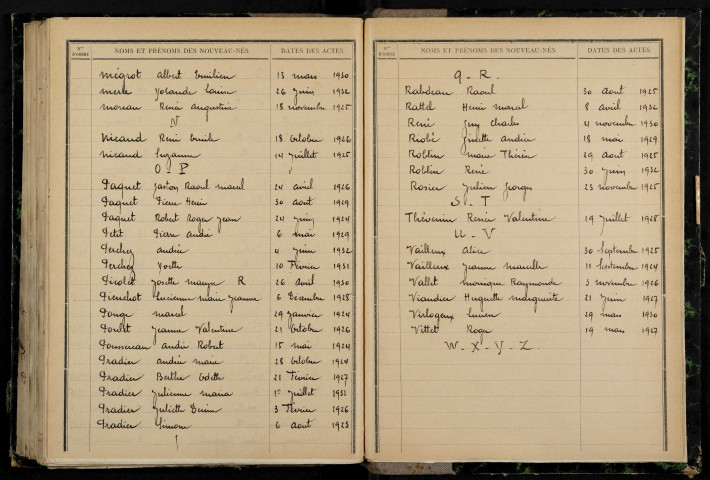 Nos D'ORDRE NOMS ET PRÉNOMS DES NOUVEAU-NÉS DATES DES ACTES
Mégrot Albert Emilien 13 mars 1930
Merle Yolande Louise 26 Juin 1932
Moreau Renée Augustine 18 novembre 1925
N
Nicaud René Emile 18 Octobre 1926
Nicaud Suzanne 14 Juillet 1925
O - P
Paquet Gaston Raoul Marcel 24 avril 1926
Paquet Pierre Henri 30 aout 1929
Paquet Robert Roger Jean 24 Juin 1924
Petit Pierre André 6 mai 1929
Perchez Andrée 4 Juin 1932
Perchez Yvette 10 Février 1931
Josette R 26 avril 1930
Lucienne Marie Jeanne 6 Décembre 1925
Marcel 29 Janvier 1924
Jeanne Valentine 21 Octobre 1926
André Robert 15 mai 1924
Pradier Andrée Marie 28 Octobre 1924
Pradier Berthe Odette 21 Février 1927
Pradier Julienne Maria 1er Juillet 1931
Pradier Juliette Denise 3 Février 1926
Pradier Simone 6 Aout 1923
Nos D'ORDRE NOMS ET PRÉNOMS DES NOUVEAU-NÉS DATES DES ACTES
Q - R.
Rabdeau Raoul 30 Aout 1925
Rattel Henri Marcel 8 avril 1932
René Guy Charles 4 novembre 1930
Riobé Ginette Andrée 18 mai 1929
Roblin Marie Thérèse 29 Aout 1925
Roblin René 30 Juin 1932
Rosier Julien Georges 23 novembre 1925
S - T
Thévenin Renée Valentine 19 Juillet 1928
U - V
Vailleux Alice 30 Septembre 1925
Vailleux Jeanne Marcelle 11 Septembre 1924
Vallet Monique Raymonde 5 novembre 1926
Viandier Huguette Marguerite 21 Juin 1927
Virlogeux Lucien 29 mars 1930
Vittet Roger 19 mars 1927
W - X - Y - Z.